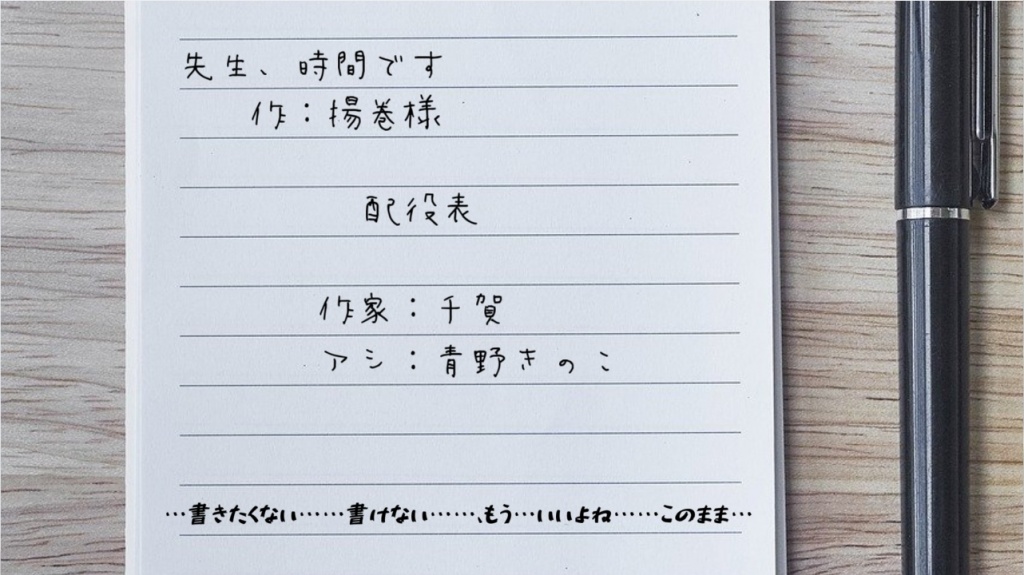 先生、時間です
作：揚巻様
配役表
作家：千賀
アシ：青野きのこ
…書きたくない……書けない……、もう…いいよね……このまま…